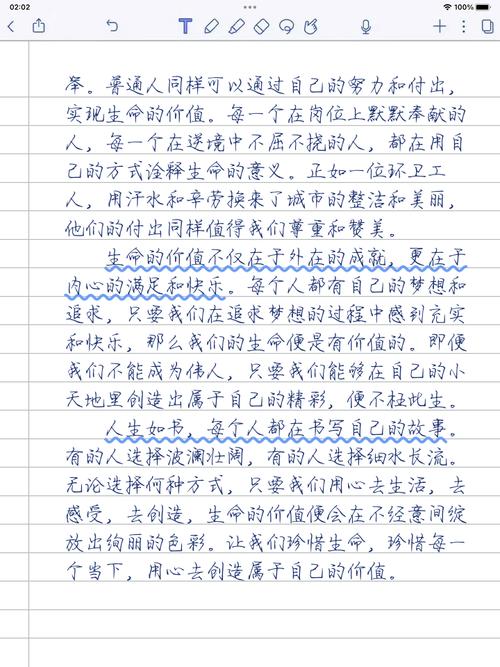 02:02
100%
举。普通人同样可以通过自己的努力和付出，
实现生命的价值。每一个在岗位上默默奉献的
人，每一个在逆境中不屈不挠的人，都在用自
己的方式诠释生命的意义。正如一位环卫工
人，用汗水和辛劳换来了城市的整洁和美丽，
他们的付出同样值得我们尊重和赞美。
生命的价值不仅在于外在的成就，更在于
内心的满足和快乐。每个人都有自己的梦想和
追求，只要我们在追求梦想的过程中感到充实
和快乐，那么我们的生命便是有价值的。即便
我们不能成为伟人，只要我们能够在自己的小
天地里创造出属于自己的精彩，便不枉此生。
人生如书，每个人都在书写自己的故事。
有的人选择波澜壮阔，有的人选择细水长流。
无论选择何种方式，只要我们用心去生活，去
感受，去创造，生命的价值便会在不经意间绽
放出绚丽的色彩。让我们珍惜生命，珍惜每一
个当下，用心去创造属于自己的价值。